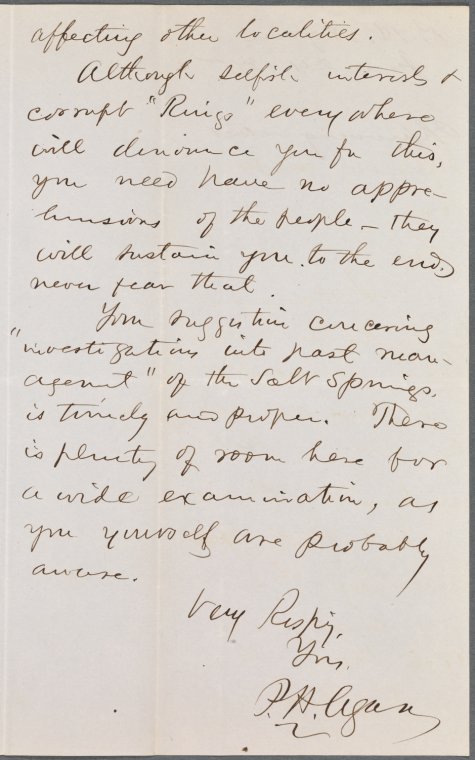 affecting other localities.
Although selfish interests &
corrupt "Rings" everywhere
will denounce you for this,
you need have no appre-
hensions of the people - they
will sustain you to the end,
never fear that.
Your suggestion concerning
"investigations into past man-
agemt" of the Salt Springs,
is timely and proper. There
is plenty of room here for
a wide examination, as
you yourself are probably
aware.
Very Respy,
Yrs.
P. H. Agan